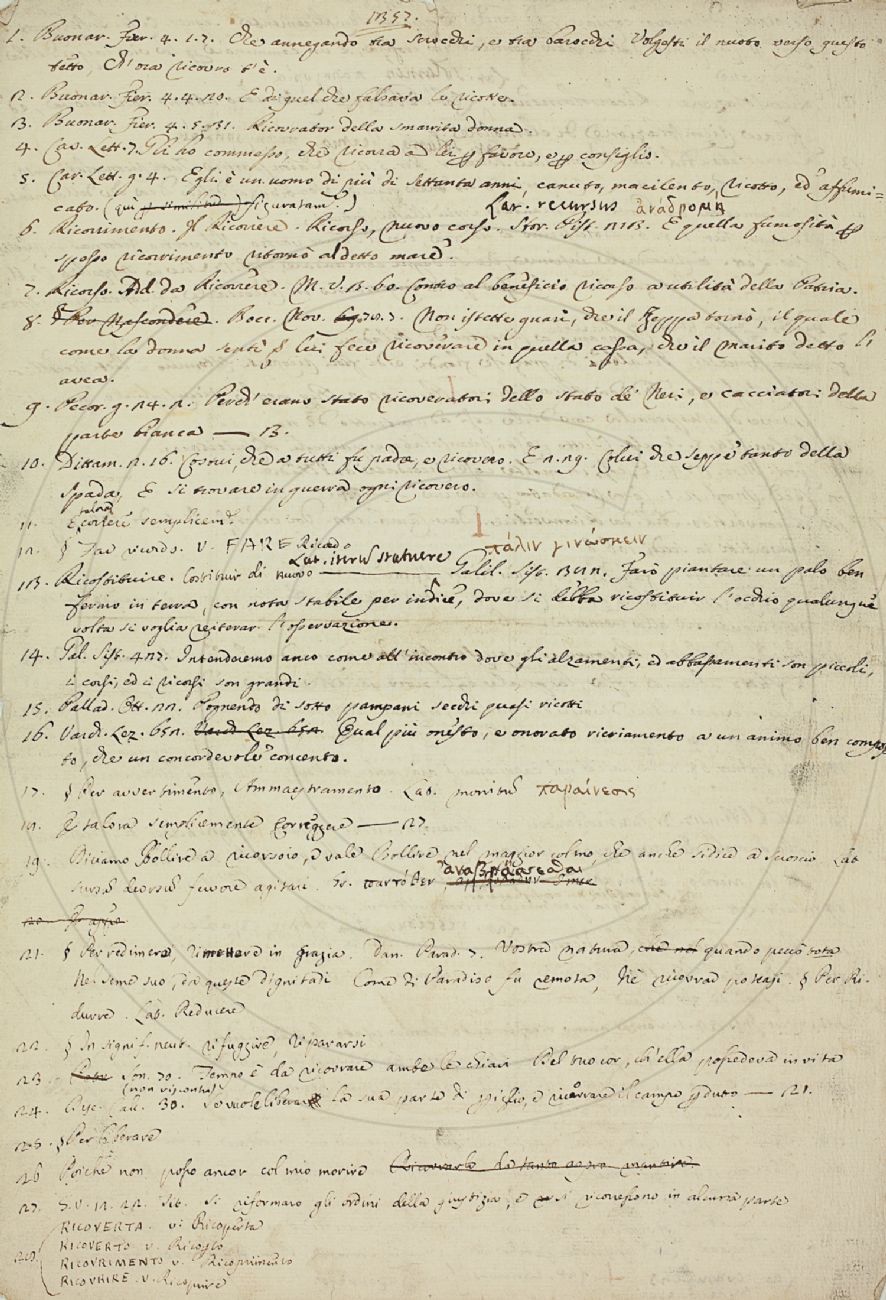 1357.
1. Buonar. Fier. 4. 1. 7. Che annegando tra scrocchi, e tra barocchi Volgesti il nuoto verso questo
tetto, Ch'ora ricovro t'è.
2. Buonar. Fier. 4. 4. 20. E di quel che falsava le ricotte.
3. Buonar. Fier. 4. 5. Ricovrator della smarrita donna.
4. Car. Lett. ho commesso, che ricorra a lei favore, e consiglio.
5. Car. Lett. 9. 4. Egli è un uomo di più di settanta anni, canuto, macilento, ricotto, ed affumi-
cato. (qui figuratam.)
Lat. recursus ἀναδρομή
6. Ricorrimento. Il Ricorrere. Ricorso, nuovo corso. Stor. Pist. E quella fumosità
spesso ricorrimento ritornò al detto mare.
7. Ricorso. Ad. da Ricorrere. M. V. Contro al benificio ricorso a utilità della Patria.
8. § Per Nascondere. Bocc. Nov. Non istette guari, che il Zeppa tornò, il quale
come la donna sentì lui fece ricoverare in quella cassa, che il marito detto li
avea.
9. Pecor. g. 24. 2. Perch' erano stato ricoveratori dello stato de' Neri, e cacciatori della
parte bianca — 13.
10. Dittam. 2. 16. Costui, che a tutti fu padre, e ricovero. E 2. 29. Colui che seppe tanto della
spada, E sì trovare in guerra ogni ricovero.
11. E talora semplicem.
12. § Far ricordo. V. FARE Ricordo
Lat. iterum statuere πάλιν γινώσκειν
113. Ricostituire. Costituir di nuovo Galil. Sist. Farò piantare un palo ben
fermo in terra, con nota stabile per indice, dove si debba ricostituir l'occhio qualunque
volta si voglia reiterar l'osservazione.
14. Gal. Sist. 427. Intenderemo anco come all'incontro dove gli alzamenti, ed abbassamenti son piccoli,
i corsi, ed i ricorsi son grandi.
15. Pallad. Ott. Pognendo di sotto pampani secchi quasi ricotti
16. Varch. Lez. 652. Varch. Lez. 652. Qual più onesto, e onorato ricriamento a un animo ben compos
to, che un concordevole concento.
17. § Per avvertimento, Ammaestramento. Lat. monitum παραίνεσις
19. E talora semplicemente Correggere — 27.
19. Diciamo Bollire a ricorsoio, e vale Bollire nel maggior colmo, che anche si dice a scroscio Lat.
sursum deorsum fervore agitari. Gr.
20.
21. § Per redimere, Rimettere in grazia. Dan. Parad. 7. Vostra natura, quando peccò tota
Nel seme suo, da queste dignitadi Come di Paradiso fu remota, Nè ricovrar poteasi. § Per Ri-
durre. Lat. Reducere
22. § In signif. neut. rifuggire, ripararsi
23. Son. 70. Tempo è da ricovrare ambe le chiavi Del tuo cor, ch'ella possedeva in vita
24. Cal. 30. (non riscontra) la sua parte di e ricovrare il campo perduto — 21.
25. § Per liberare
26 Poichè non posso ancor col mio morire Ricovrarla
27. Si riformaro gli ordini della giustizia, e si ricorressono in alcuna parte
28. RICOVERTA. v. Ricoperta
RICOVERTO v. Ricopto
RICOVRIMENTO v. Ricoprimento
RICOVRIRE. v. Ricoprire